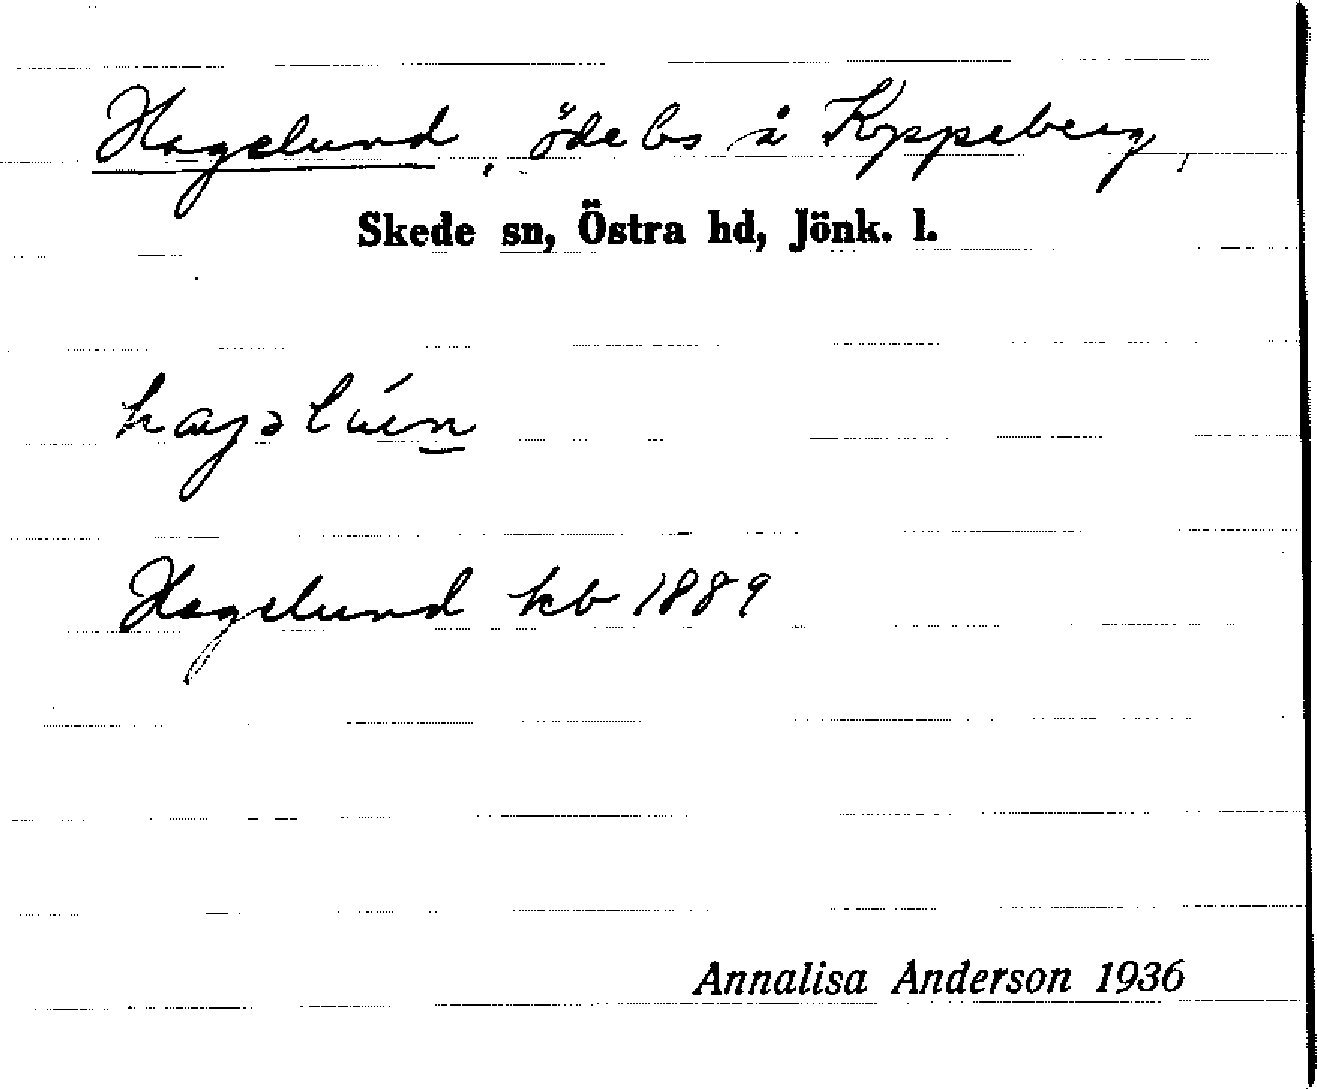 Hagelund, ödebs å Koppeberg,
Skede sn, Östra hd, Jönk. l.
Hagelund kb 1889
Annalisa Anderson 1936